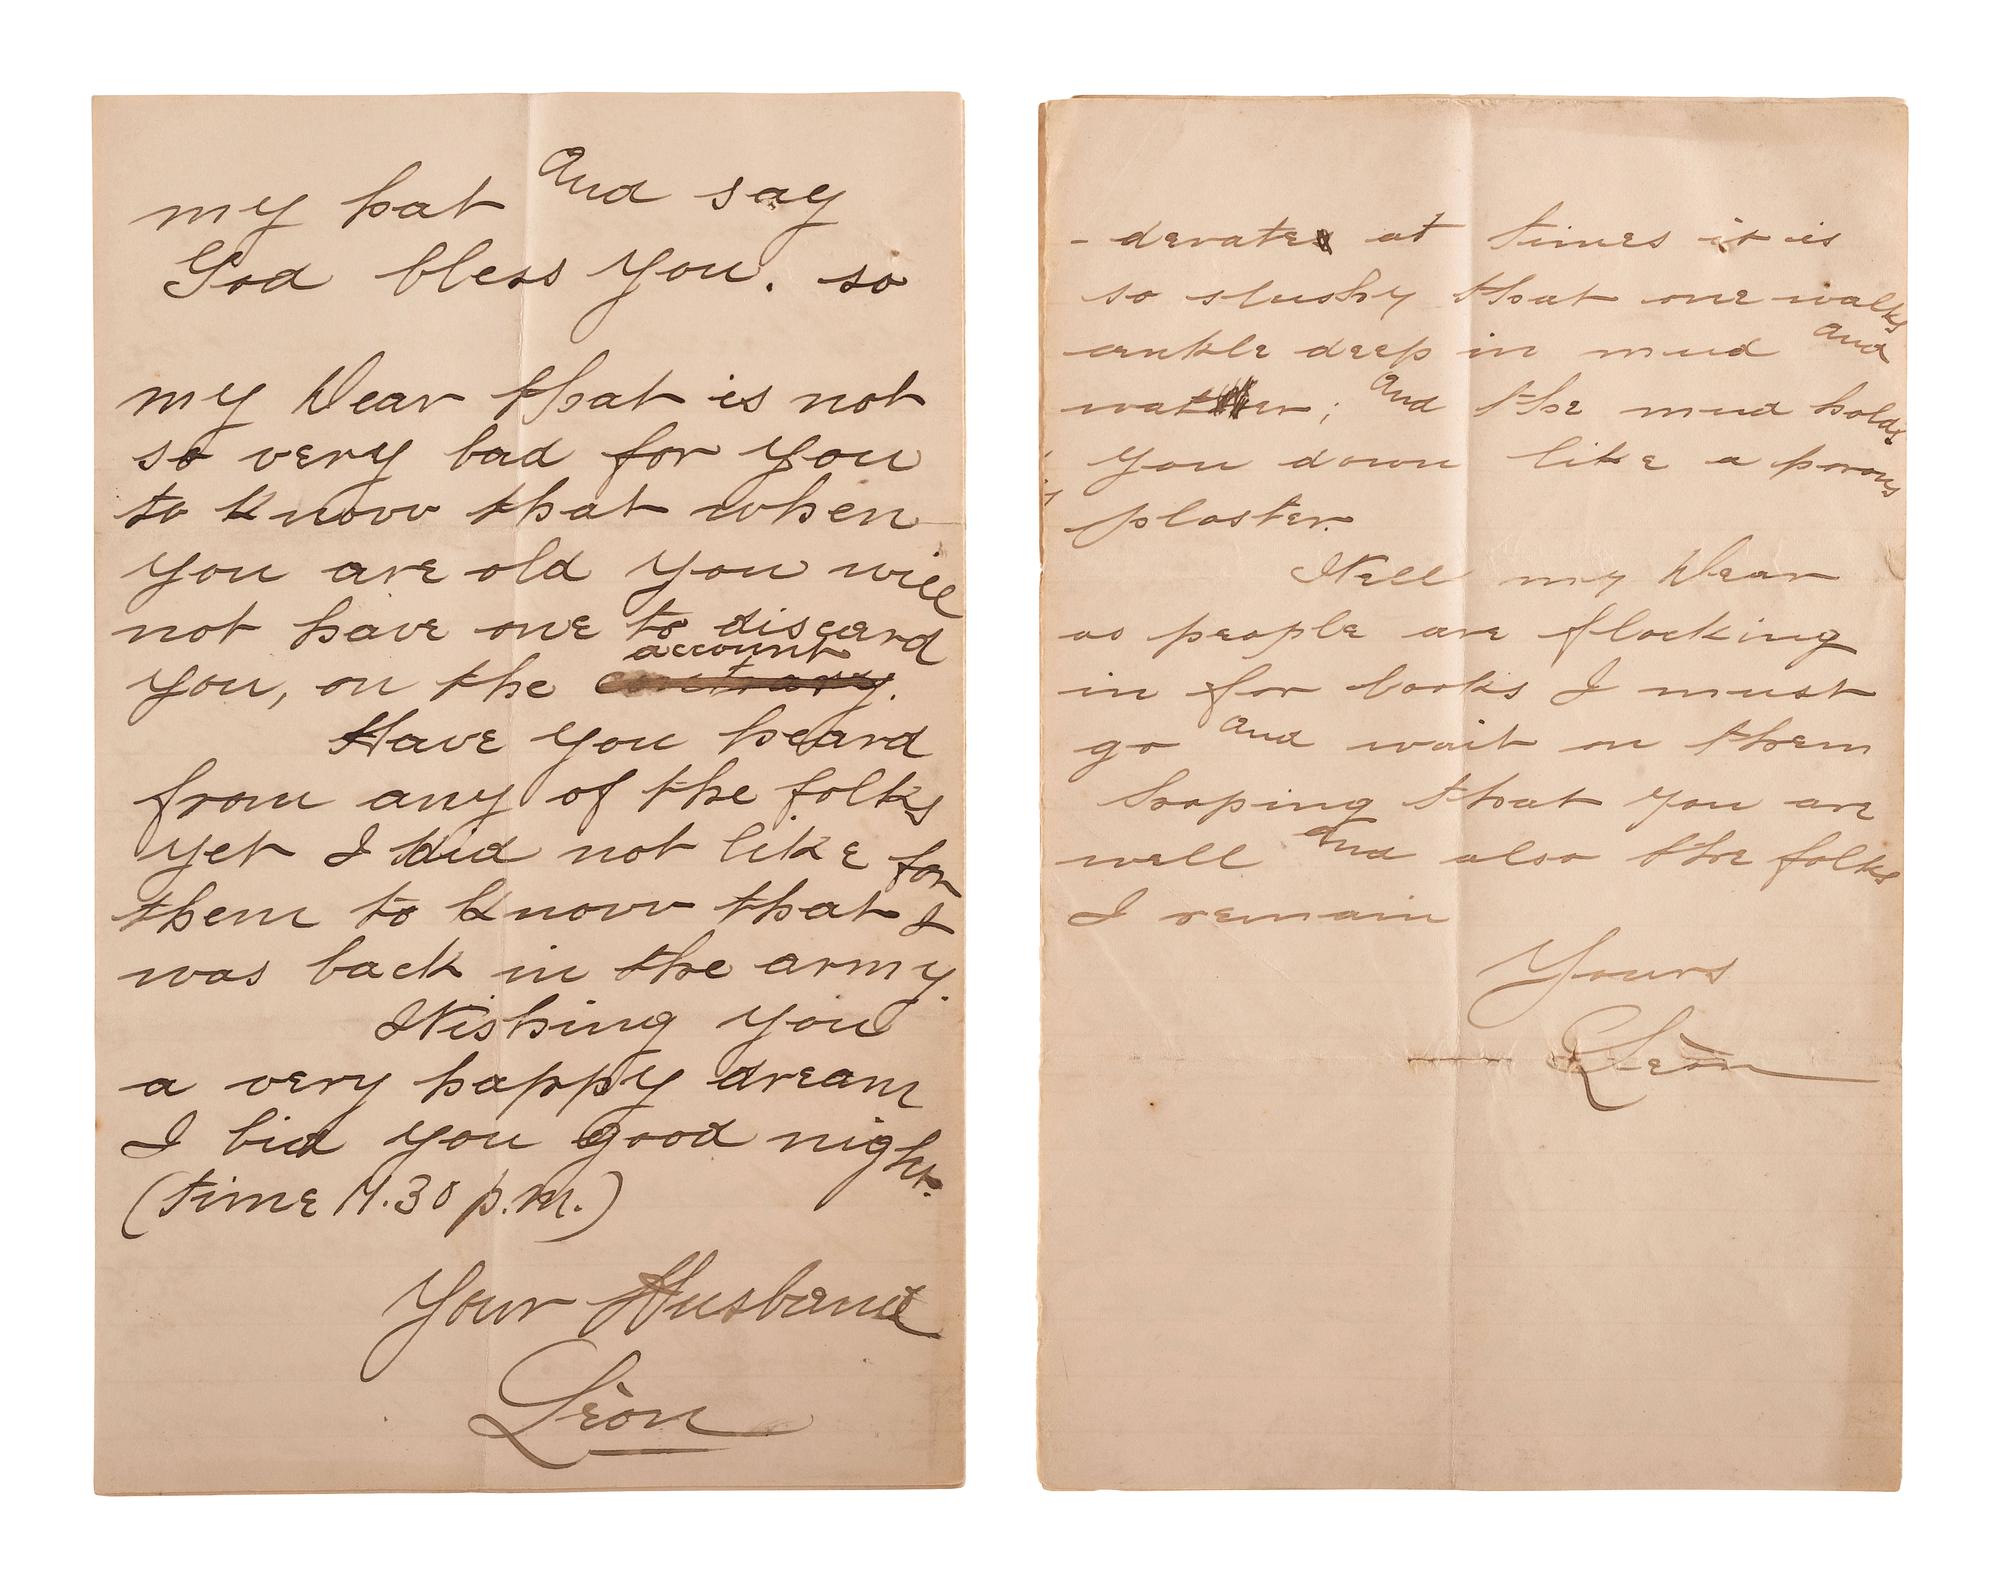 my hat and say
God bless you. so
my Dear that is not
so very bad for you
to know that when
you are old you will
not have one to discard
account
you, on the contrary.
Have you heard
from any of the folks
yet I did not like for
them to know that I
was back in the army.
Wishing you
a very happy dream
I bid you good night.
(time 11.30 p.m.)
Your Husband
Lèon
- derate at times it is
so slushy that one walks
ankle deep in mud and
water; and the mud holds
you down like a porous
plaster.
Well my Dear
as people are flocking
in for books I must
go and wait on them
hoping that you are
well and also the folks
I remain
Yours
Lèon